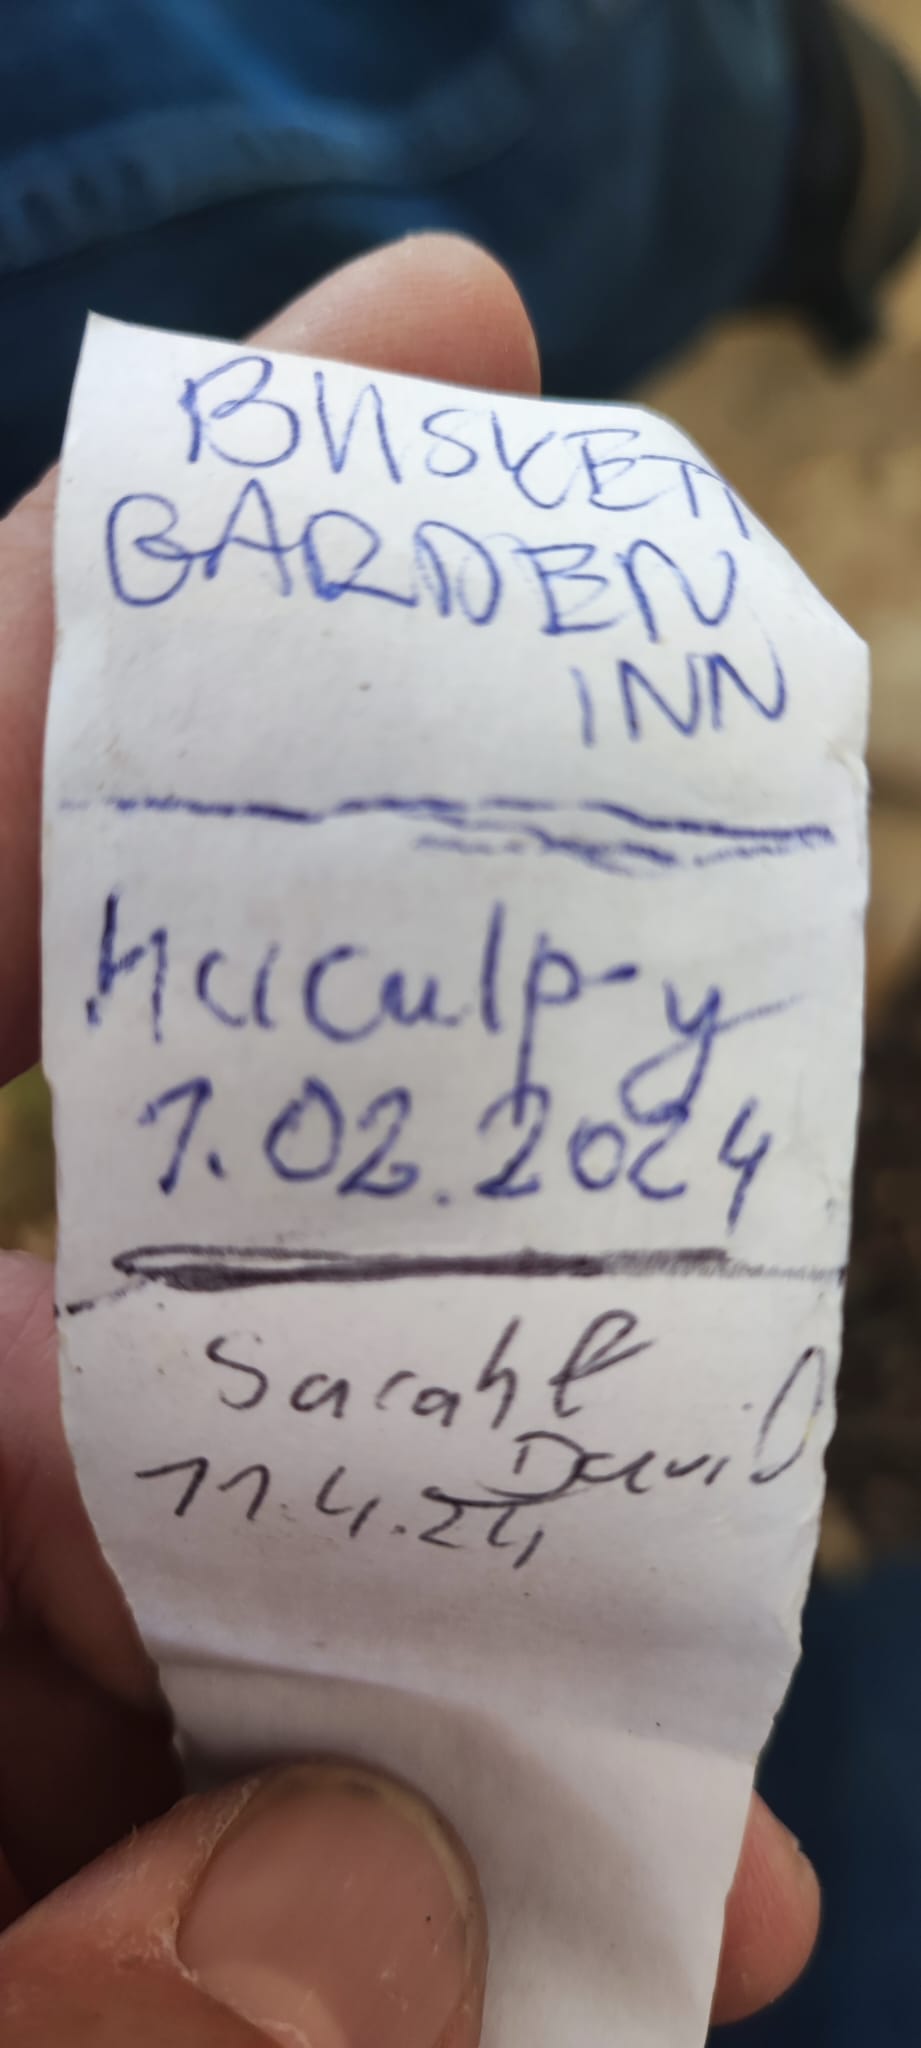 BUSKETT
GARDEN
INN
1.02.2024
Sarah &
David
11.4.24